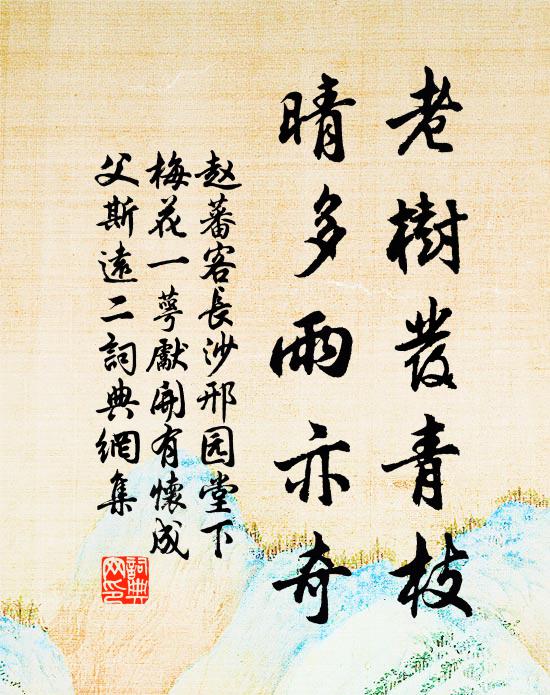 老樹發青枝
晴多雨亦奇
赵蕃客長沙邢园堂下
梅花一萼獻開有懷成
父斯遠二詞典網集
詞典
网印